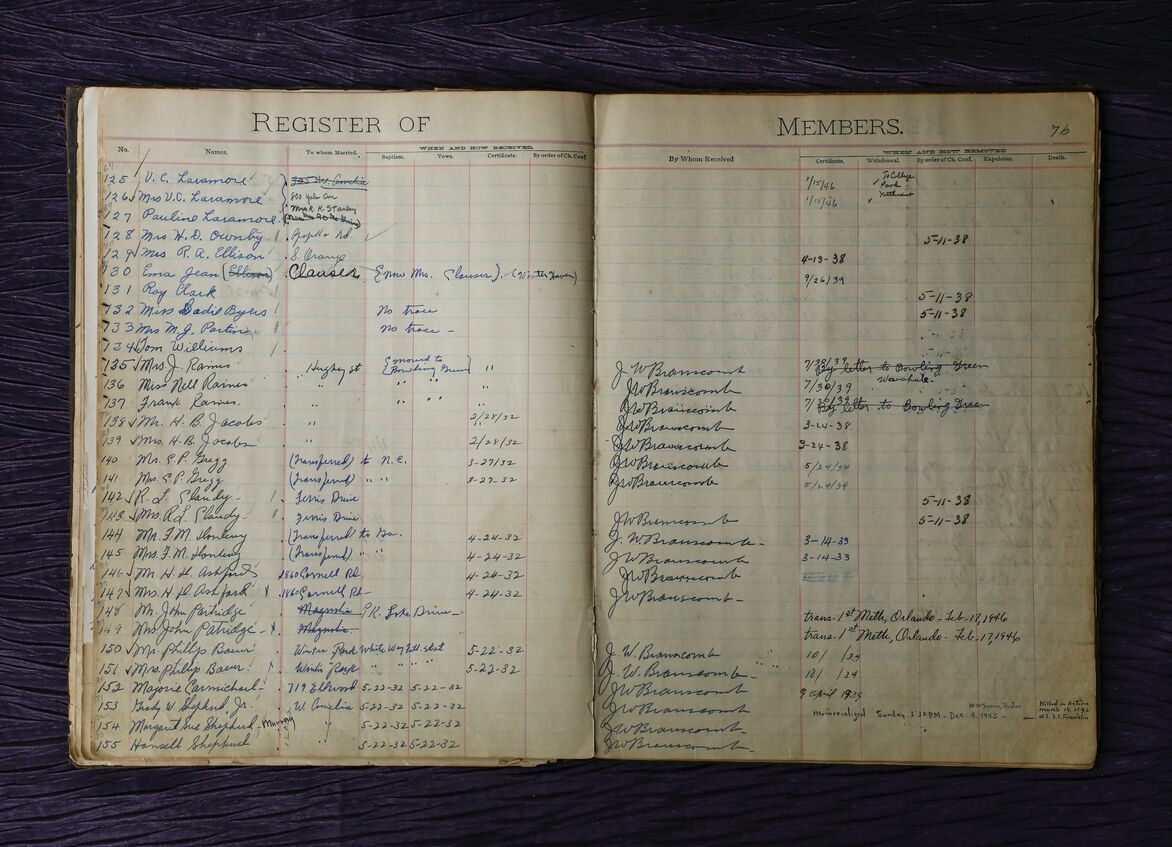 REGISTER OF MEMBERS. 76
No. Names. To whom Married. WHEN AND HOW RECEIVED. Baptism. Vows. Certificate. By order of Ch. Conf. By Whom Received WHEN AND HOW REMOVED Certificate. Withdrawal. By order of Ch. Conf. Expulsion. Death.
125 V.C. Laramore 1/15/46 To College Park
126 Mrs V.C. Laramore 1/15/46
Mrs. R. K. Stanley
127 Pauline Laramore
128 Mrs H.D. Ownby Rd. 5-11-38
129 Mrs R.A. Ellison S. Orange 4-13-38
130 Jean (Ellison) Clauser (now Mrs. Clauser). (Winter Haven) 9/26/39
131 Roy Clark 5-11-38
132 Miss Sadie Byers No trace 5-11-38
133 Mrs M.J. No trace -
134 Tom Williams
135 Mrs. J. Raines Hughey st (moved to Bowling Green) " J W Branscomb 7/30/39 By letter to Bowling Green
136 Miss Nell Raines " " " JW Branscomb 7/30/39 Wauchula
137 Frank Raines. " " " JW Branscomb 7/30/39 By letter to Bowling Green
138 Mr. H. B. Jacobs " 2/28/32 JW Branscomb 3-24-38
139 Mrs. H. B. Jacobs " 2/28/32 JW Branscomb 3-24-38
140 Mr. E.P. Gregg (Transferred) to N.C. 3-27/32 JW Branscomb 5/24/34
141 Mrs. E.P. Gregg (Transferred) " " 3-27-32 JW Branscomb 5/24/34
142 R. L. Ferris Drive 5-11-38
143 Mrs. R.L. Ferris Drive JW Branscomb 5-11-38
144 Mr. F.M. (Transferred) to Ga. 4-24-32 J. W. Branscomb - 3-14-33
145 Mrs. F.M. (Transferred) " " 4-24-32 JW Branscomb 3-14-33
146 Mr. H. H. Ashford 1860 Cornell Rd 4-24-32 JW Branscomb
147 Mrs. H. H. Ashford 1860 Cornell Rd- 4-24-32 JW Branscomb -
148 Mr. John Partridge Magnolia Lake Drive - trans. 1st Meth, Orlando - Feb. 17, 1946
149 Mrs. John Patridge - Magnolia. trans. 1st Meth, Orlando - Feb. 17, 1946
150 Mr. Phillip Winter Park 5-22-32 J. W. Branscomb 10/ /34
151 Mrs. Phillip Winter Park 5-22-32 J. W. Branscomb - 10/ /34
152 Majorie Carmichael - 719 Elkwood 5-22-32 5-22-32 JW Branscomb 9 April 1935
153 Grady W. Shepherd Jr. W. Amelia 5-22-32 5-22-32 JW Branscomb Memorialized Sunday 2:30 P.M. - Dec. 1945 - Killed in Action March 19, 1945 U.S.S. Franklin
154 Margaret Sue Shepherd, Murray " 5-22-32 5-22-32 JW Branscomb -
155 Hansell Shepherd 5-22-32 5-22-32 JW Branscomb -